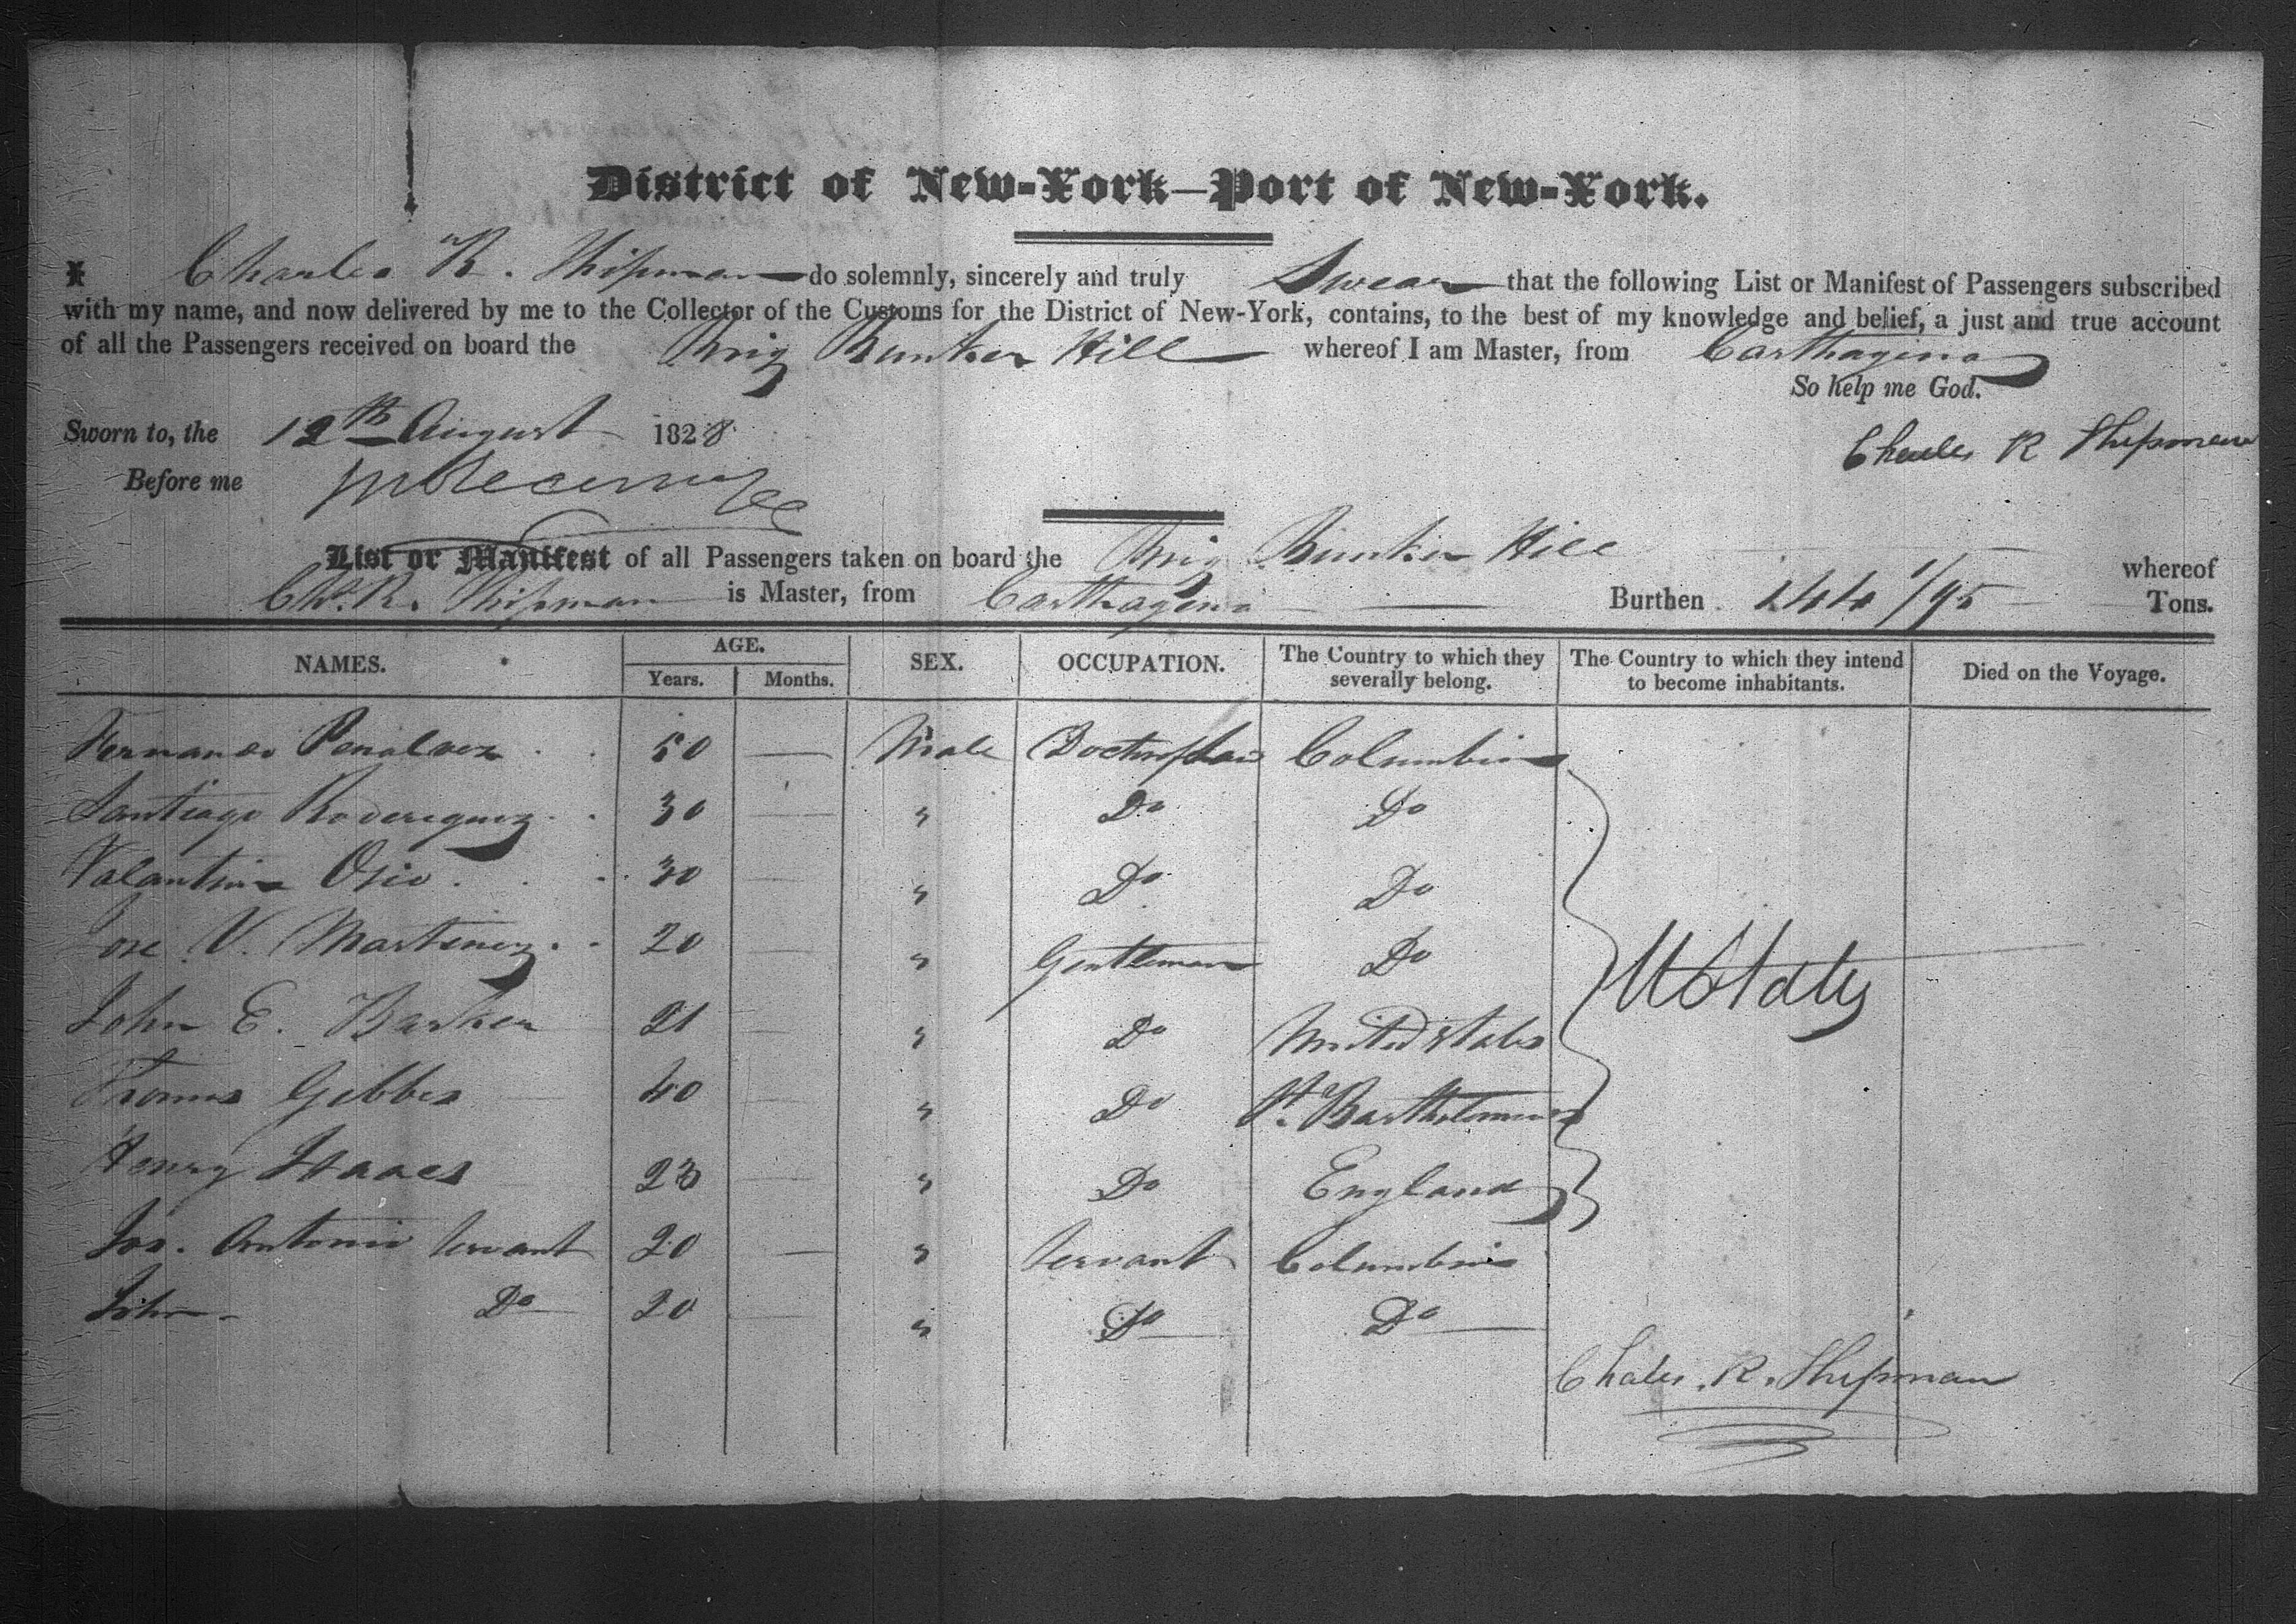 District of New-York—Port of New-York.
I Charles R. Shipman do solemnly, sincerely and truly Swear that the following List or Manifest of Passengers subscribed
with my name, and now delivered by me to the Collector of the Customs for the District of New-York, contains, to the best of my knowledge and belief, a just and true account
of all the Passengers received on board the Brig Bunker Hill whereof I am Master, from Carthagena
So help me God.
Sworn to, the 12th August 1828 Charles R Shipman
Before me
List or Manifest of all Passengers taken on board the Brig Bunker Hill whereof
Chs. R. Shipman is Master, from Carthagena Burthen 144 1/95 Tons.
NAMES. AGE. Years. Months. SEX. OCCUPATION. The Country to which they severally belong. The Country to which they intend to become inhabitants. Died on the Voyage.
Fernando Penalver 50 — Male Columbia
Santiago Roderiguez 30 — " Do Do
Valantine Osio 30 — " Do Do
Jose V. Martinez 20 — " Gentleman Do
John E. Barker 21 — " Do United States
Thomas Gibbes 40 — " Do St. Bartholomews
Henry Isaacs 23 — " Do England
U States
Jos. Antonio Servant 20 — " Servant Columbia
John Do 20 — " Do Do
Chales. R. Shipman